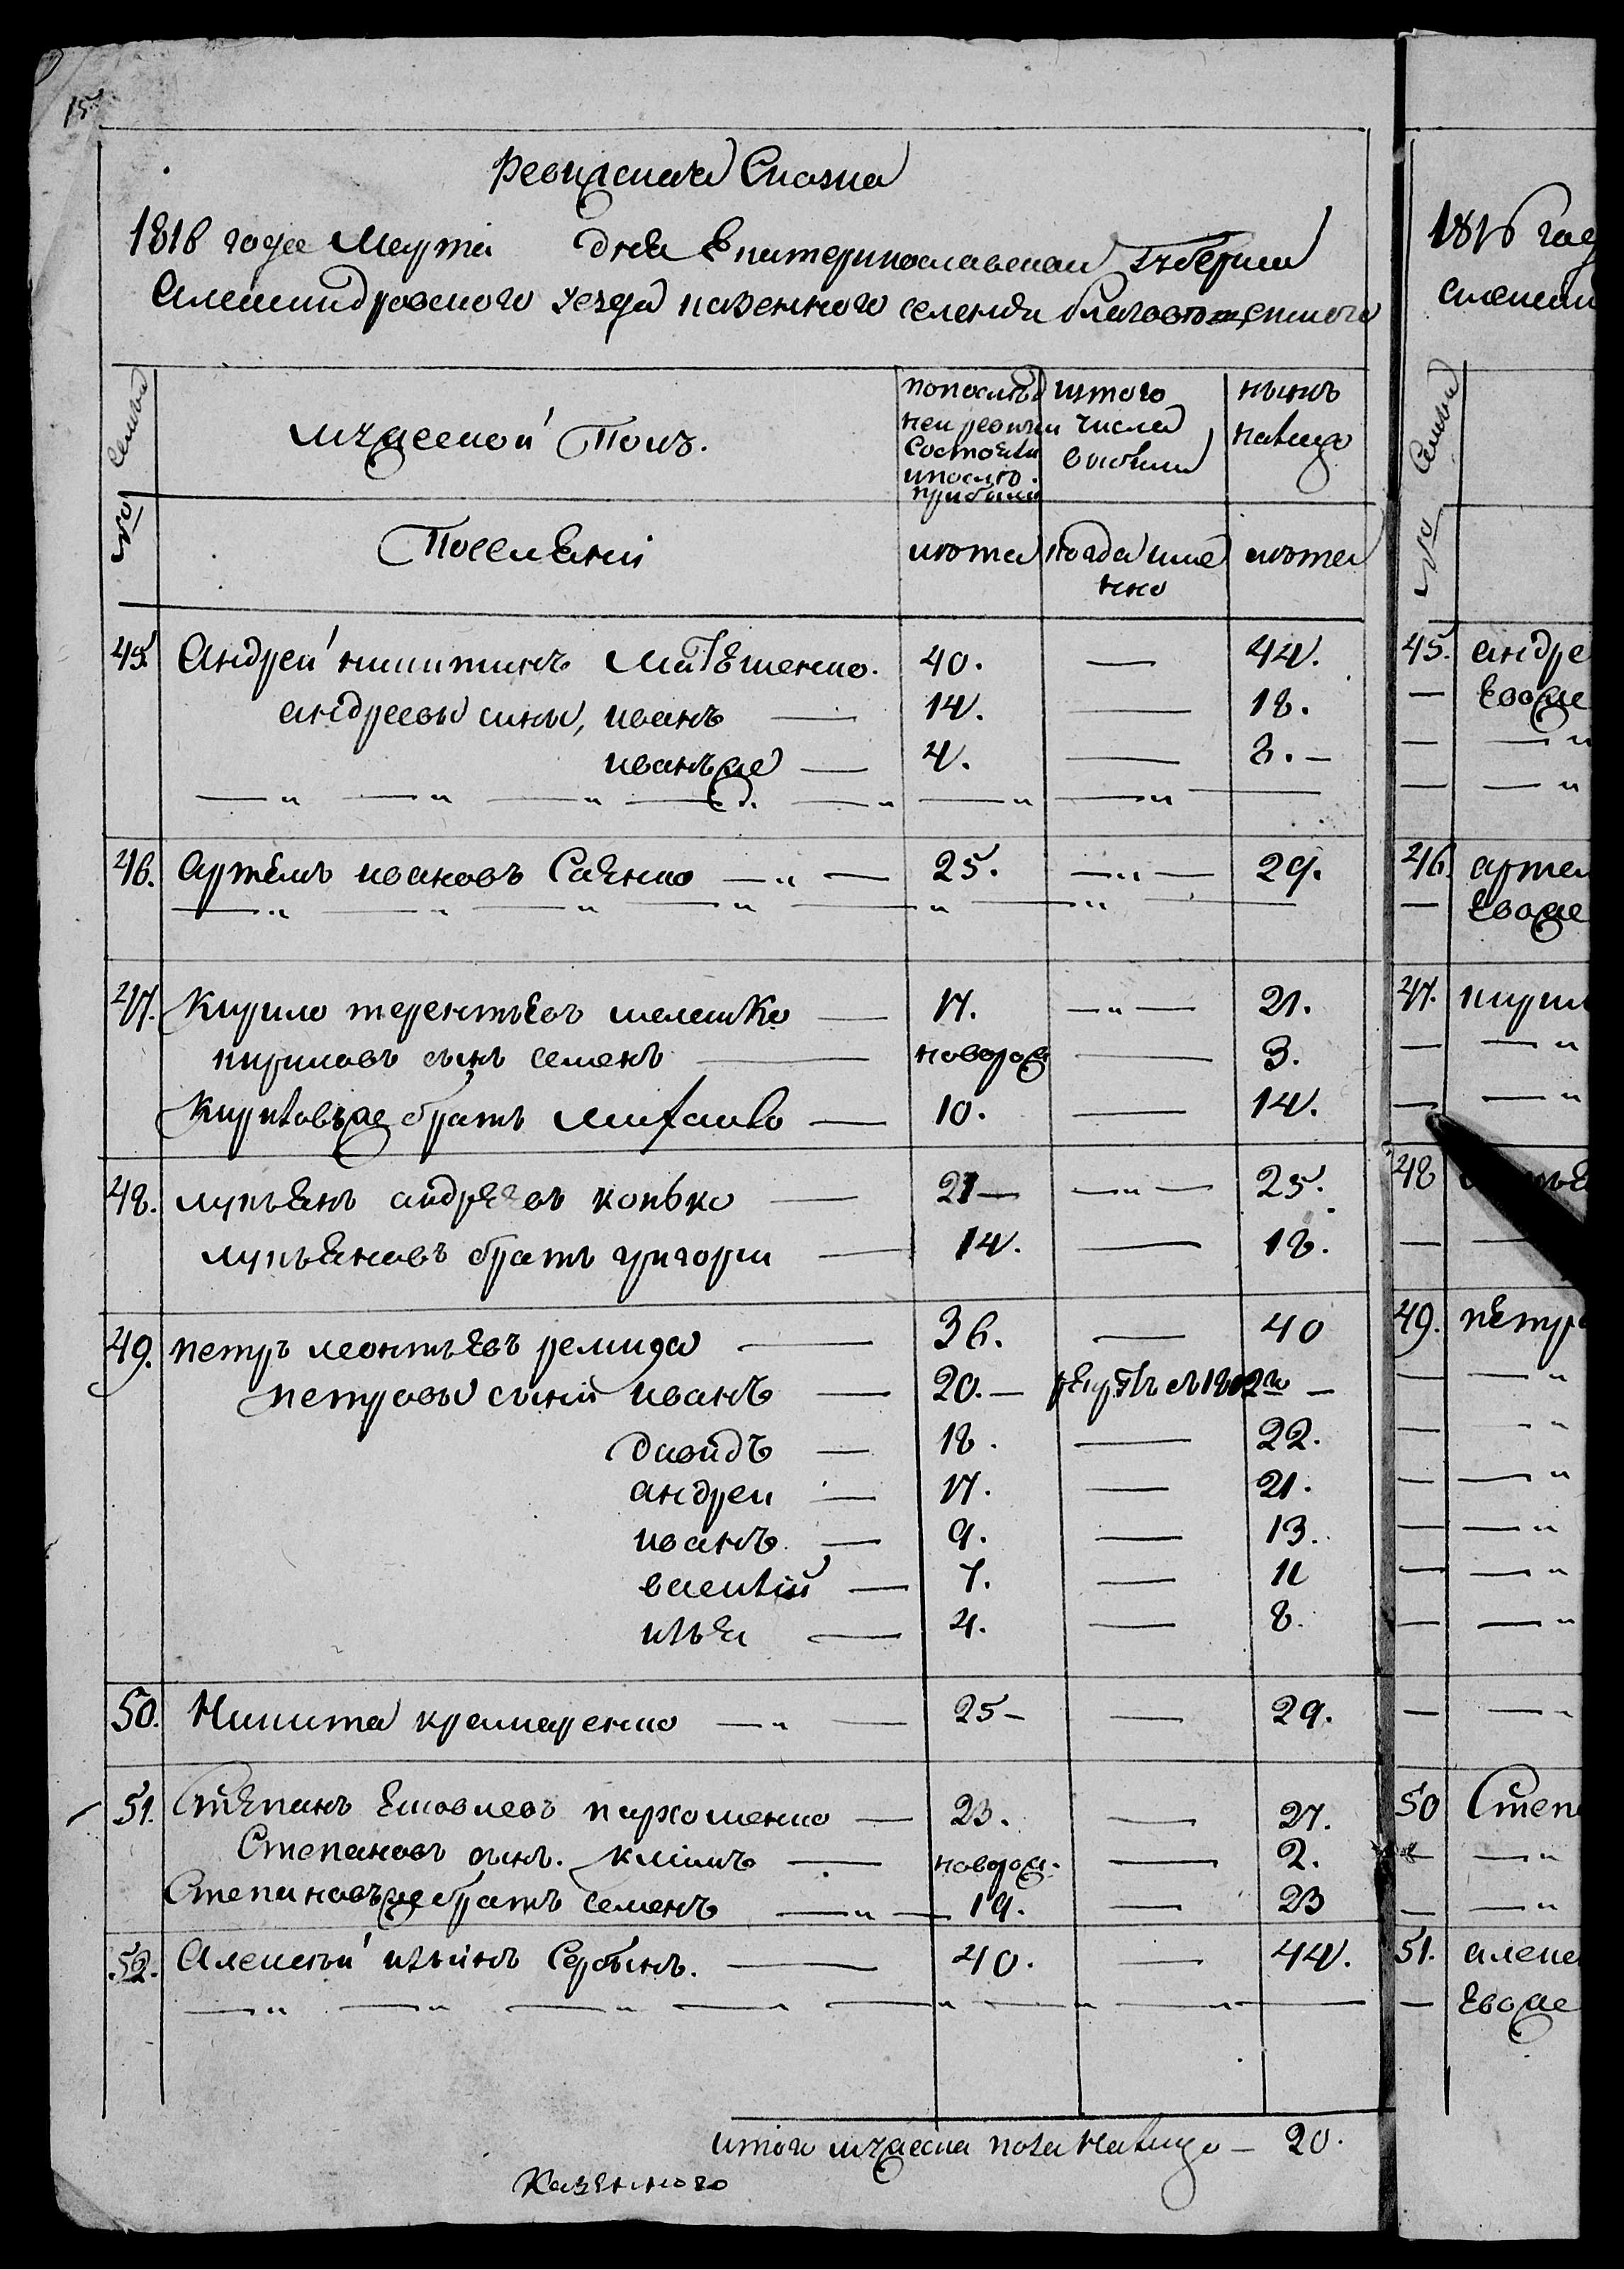 15
Ревижская Сказка
1816 года Марта дня Екатеринославской Губернии
Александровского уезда казенного селения благовещенского
№ семьи
мужеской Полъ.
по послѣд
ней ревизіи
состояло
и послѣ
прибыло
изтого
числа
выбыло
нынѣ
налицо
Поселяни
лѣта
когда имѣ
нно
лѣта
45. Андрей никитинъ матвѣенко. 40. — 44.
андреевы сины, иванъ — 14. — 18.
иванъже — 4. — 8. —
46. артемъ ивановъ Саенко — 25. — 29.
47. Кирило терентьевъ шелешко — 17. — 21.
кириловъ сынъ семенъ — новорож — 3.
Кириловъже братъ михайло — 10. — 14.
48. лукьянъ андреевъ копько — 21 — 25.
лукьяновъ братъ григори — 14. — 18.
49. петръ леонтьевъ ремизо — 36. — 40
петровы сыни иванъ — 20. — рекрутъ съ 1812го —
давидъ — 18. — 22.
андреи — 17. — 21.
иванъ — 9. — 13.
василій — 7. — 11
илья — 4. — 8.
50. Никита крамаренко — 25 — 29.
51. Степанъ Яковлевъ пархоменко — 23. — 27.
Степановъ сынъ. климъ — новорож. — 2.
Степановъже братъ семенъ — 19. — 23
52. Алексѣй ильинъ Сербинъ. — 40. — 44.
итого мужеска пола налицо — 20.
Казенного
1816 год
алексан
№ семьи
45. андре
— Евоже
46. артем
— Евоже
47. кирил
48
49. петр
50 Степ
51. алекс
— Евоже